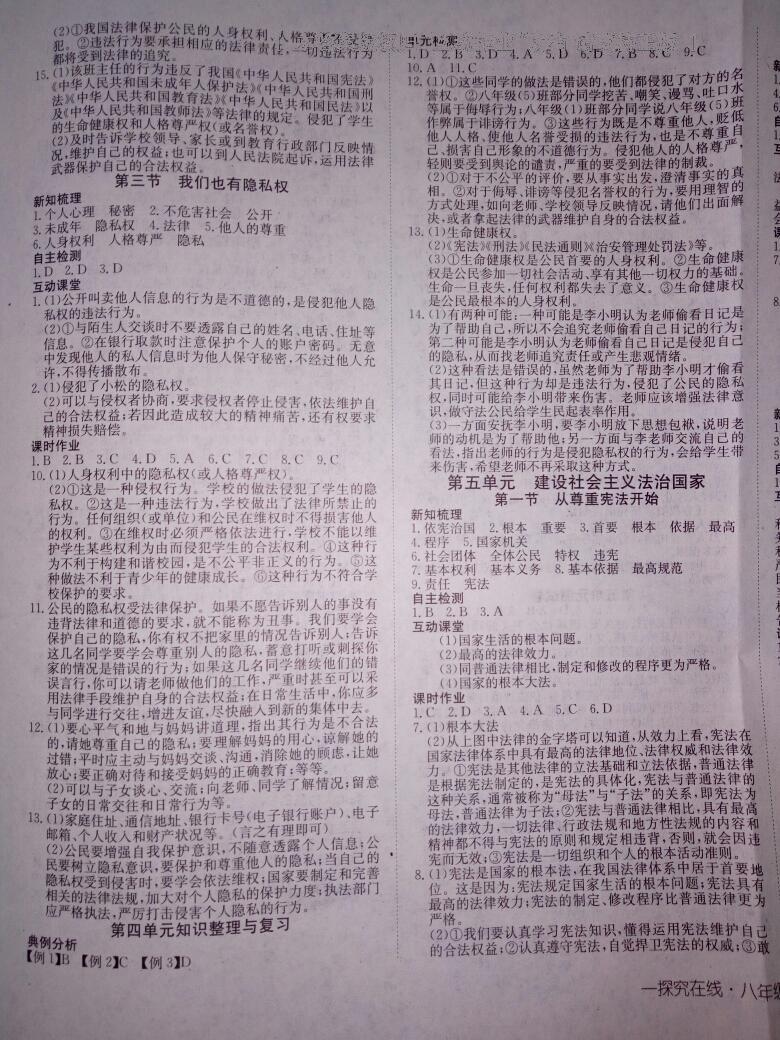 (2)①我国法律保护公民的人身权利、人格尊严不受侵
犯。②违法行为要承担相应的法律责任,一切违法行为
都将受到法律的追究。
15.(1)该班主任的行为违反了我国《中华人民共和国宪法》
《中华人民共和国未成年人保护法》《中华人民共和国刑
法》《中华人民共和国教育法》《中华人民共和国民法》以
及《中华人民共和国教师法》等法律的规定。侵犯了学生
的生命健康权和人格尊严权(或名誉权)。
(2)及时告诉学校领导、家长或到教育行政部门反映情
况,维护自己的权益;也可以到人民法院起诉,运用法律
武器保护自己的合法权益。
第三节 我们也有隐私权
新知梳理
1.个人心理 秘密 2.不危害社会 公开
3.未成年 隐私权 4.法律 5.他人的尊重
6.人身权利 人格尊严 隐私
自主检测
1.D 2.D 3.D
互动课堂
1.(1)公开叫卖他人信息的行为是不道德的,是侵犯他人隐
私权的违法行为。
(2)①与陌生人交谈时不要透露自己的姓名、电话、住址等
信息。②在银行取款时注意保护个人的账户密码。无意
中发现他人的私人信息时为他人保守秘密,不经过他人允
许,不得传播散布。
2.(1)侵犯了小松的隐私权。
(2)可以与侵权者协商,要求侵权者停止侵害,依法维护自
己的合法权益;若因此造成较大的精神痛苦,还有权要求
精神损失赔偿。
课时作业
1.B 2.B 3.C 4.D 5.A 6.C 7.C 8.C 9.C
10.(1)人身权利中的隐私权(或人格尊严权)。
(2)①这是一种侵权行为。学校的做法侵犯了学生的隐
私权。②这是一种违法行为,学校做出了法律所禁止的
行为。任何组织(或单位)和公民在维权时不得损害他人
的权利。③在维权时必须严格依法进行,学校不能以维
护学生某些权利为由而侵犯学生的合法权利。④这种行
为不利于构建和谐校园,是不公平非正义的行为。⑤这
种做法不利于青少年的健康成长。⑥这种行为不符合学
校保护的要求。
11.公民的隐私权受法律保护。如果不愿告诉别人的事没有
违背法律和道德的要求,就不能称为丑事。我们要学会
保护自己的隐私,你有权不把家里的情况告诉别人;告诉
这几名同学要学会尊重别人的隐私,蓄意打听或刺探你
家的情况是错误的行为;如果这几名同学继续他们的错
误言行,你可以请老师做他们的工作,严重时甚至可以采
用法律手段维护自身的合法权益;在日常生活中,你应多
与同学进行交往,增进友谊,尽快融入到新的集体中去。
12.(1)要心平气和地与妈妈讲道理,指出其行为是不合法
的,请她尊重自己的隐私;要理解妈妈的用心,谅解她的
过错;平时应主动与妈妈交谈、沟通,消除她的顾虑,让她
放心;要正确对待和接受妈妈的正确教育;等等。
(2)可以与子女谈心、交流;向老师、同学了解情况;留意
子女的日常交往和日常行为等。
13.(1)家庭住址、通信地址、银行卡号(电子银行账户)、电子
邮箱、个人收入和财产状况等。(言之有理即可)
(2)公民要增强自我保护意识,不随意透露个人信息;公
民要树立隐私意识,要保护和尊重他人的隐私;当自己的
隐私权受到侵害时,要学会依法维权;国家要制定和完善
相关的法律法规,加大对个人隐私的保护力度;执法部门
应严格执法,严厉打击侵害个人隐私的行为。
第四单元知识整理与复习
典例分析
【例1】B 【例2】C 【例3】D
单元检测
1.D 2.B 3.D 4.A 5.D 6.D 7.B 8.C 9.C
10.A 11.C
12.(1)①这些同学的做法是错误的,他们都侵犯了对方的名
誉权。②八年级(5)班部分同学挖苦、嘲笑、谩骂、吐口水
等属于侮辱行为;八年级(1)班部分同学说八年级(5)班
作弊属于诽谤行为。③这些行为既是不尊重他人,贬低
他人人格、使他人名誉受损的违法行为,也是不尊重自
己、损害自己形象的不道德行为。侵犯他人的人格尊严,
轻则要受到舆论的谴责,严重的要受到法律的制裁。
(2)①对于不公平的评价,要从事实出发,澄清事实的真
相。②对于侮辱、诽谤等侵犯名誉权的行为,要用理智的
方式处理,如向老师、学校领导反映情况,请他们出面解
决,或者拿起法律的武器维护自身的合法权益。
13.(1)生命健康权。
(2)《宪法》《刑法》《民法通则》《治安管理处罚法》等。
(3)①生命健康权是公民首要的人身权利。②生命健康
权是公民参加一切社会活动、享有其他一切权力的基础。
生命一旦丧失,任何权利都失去了意义。③生命健康权
是公民最根本的人身权利。
14.(1)有两种可能:一种可能是李小明认为老师偷看日记是
为了帮助自己,所以不会追究老师偷看自己日记的行为;
第二种可能是李小明认为老师偷看自己日记是侵犯自己
的隐私,从而找老师追究责任或产生悲观情绪。
(2)这种看法是错误的,虽然老师为了帮助李小明才偷看
其日记,但这种行为却是违法行为,侵犯了公民的隐私
权,同时可能给李小明带来伤害。老师应该增强法律意
识,做守法公民给学生民起表率作用。
(3)一方面安抚李小明,要李小明放下思想包袱,说明老
师的动机是为了帮助他;另一方面与李老师交流自己的
看法,指出老师的行为是侵犯隐私权的行为,会给学生带
来伤害,希望老师不再采取这种方式。
第五单元 建设社会主义法治国家
第一节 从尊重宪法开始
新知梳理
1.依宪治国 2.根本 重要 3.首要 根本 依据 最高
4.程序 5.国家机关
6.社会团体 全体公民 特权 违宪
7.基本权利 基本义务 8.基本依据 最高规范
9.责任 宪法
自主检测
1.B 2.B 3.A
互动课堂
(1)国家生活的根本问题。
(2)最高的法律效力。
(3)同普通法律相比,制定和修改的程序更为严格。
(4)国家的根本大法。
课时作业
1.C 2.D 3.A 4.A 5.C 6.D
7.(1)根本大法
(2)从上图中法律的金字塔可以知道,从效力上看,宪法在
国家法律体系中具有最高的法律地位、法律权威和法律效
力。①宪法是其他法律的立法基础和立法依据,普通法律
是根据宪法制定的,是宪法的具体化,宪法与普通法律的
这种关系,通常被称为“母法”与“子法”的关系,即宪法为
母法,普通法律为子法;②宪法与普通法律相比,具有最高
的法律效力,一切法律、行政法规和地方性法规的内容和
精神都不得与宪法的原则和规定相违背,否则,就会因违
宪而无效;③宪法是一切组织和个人的根本活动准则。
8.(1)宪法是国家的根本法,在我国法律体系中居于首要地
位。这是因为:宪法规定国家生活的根本问题;宪法具有
最高的法律效力;宪法的制定、修改程序比普通法律更为
严格。
(2)①我们要认真学习宪法知识,懂得运用宪法维护自己
的合法权益;②认真遵守宪法,自觉捍卫宪法的权威;③敢
一探究在线·八年级